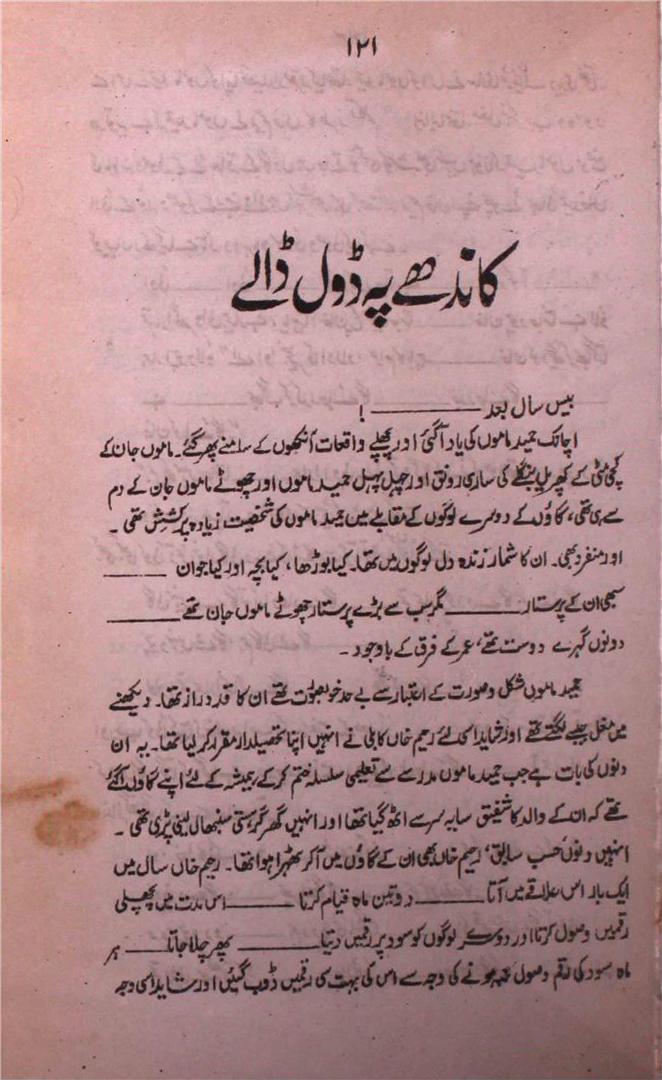 ۱۲۱
کاندھے پہ ڈول ڈالے
بیس سال بعد ـــــــــــــ !
اچانک حمید ماموں کی یاد آگئی اور پچھلے واقعات آنکھوں کے سامنے پھر گئے۔ ماموں جان کے
کچی مٹی کے کھپریل بنگلے کی ساری رونق اور چہل پہل حمید ماموں اور چھوٹے ماموں جان کے دم
سے ہی تھی، گاؤں کے دوسرے لوگوں کے مقابلے میں حمید ماموں کی شخصیت زیادہ پرکشش تھی۔
اور منفرد بھی۔ ان کا شمار زندہ دل لوگوں میں تھا۔ کیا بوڑھا، کیا بچہ اور کیا جوان ـــــــــــــ
سبھی ان کے پرستار ـــــــــــــ مگر سب سے بڑے پرستار چھوٹے ماموں جان تھے ـــــــــــــ
دونوں گہرے دوست تھے، عمر کے فرق کے باوجود۔
حمید ماموں شکل وصورت کے اعتبار سے بے حد خوبصورت تھے ان کا قد دراز تھا۔ دیکھنے
میں مغل جیسے لگتے تھے اور شاید اسی لئے رحیم خاں کابلی نے انہیں اپنا تحصیلدار مقرر کر لیا تھا۔ یہ ان
دنوں کی بات ہے جب حمید ماموں مدرسے سے تعلیمی سلسلہ ختم کر کے ہمیشہ کے لئے اپنے گاؤں آگئے
تھے کہ ان کے والد کا شفیق سایہ سر سے اٹھ گیا تھا اور انہیں گھر گرہستی سنبھال لینی پڑی تھی۔
انہیں دنوں حسب سابق، رحیم خاں بھی ان کے گاؤں میں آکر ٹھہرا ہوا تھا۔ رحیم خاں سال میں
ایک بار اس علاقے میں آتا ـــــــــــــ دو تین ماہ قیام کرتا ـــــــــــــ اس مدت میں پچھلی
رقمیں وصول کرتا اور دوسرے لوگوں کو سود پر رقمیں دیتا ـــــــــــــ پھر چلا جاتا ـــــــــــــ ہر
ماہ سود کی رقم وصول نہ ہونے کی وجہ سے اس کی بہت سی رقمیں ڈوب گئیں اور شاید اسی وجہ